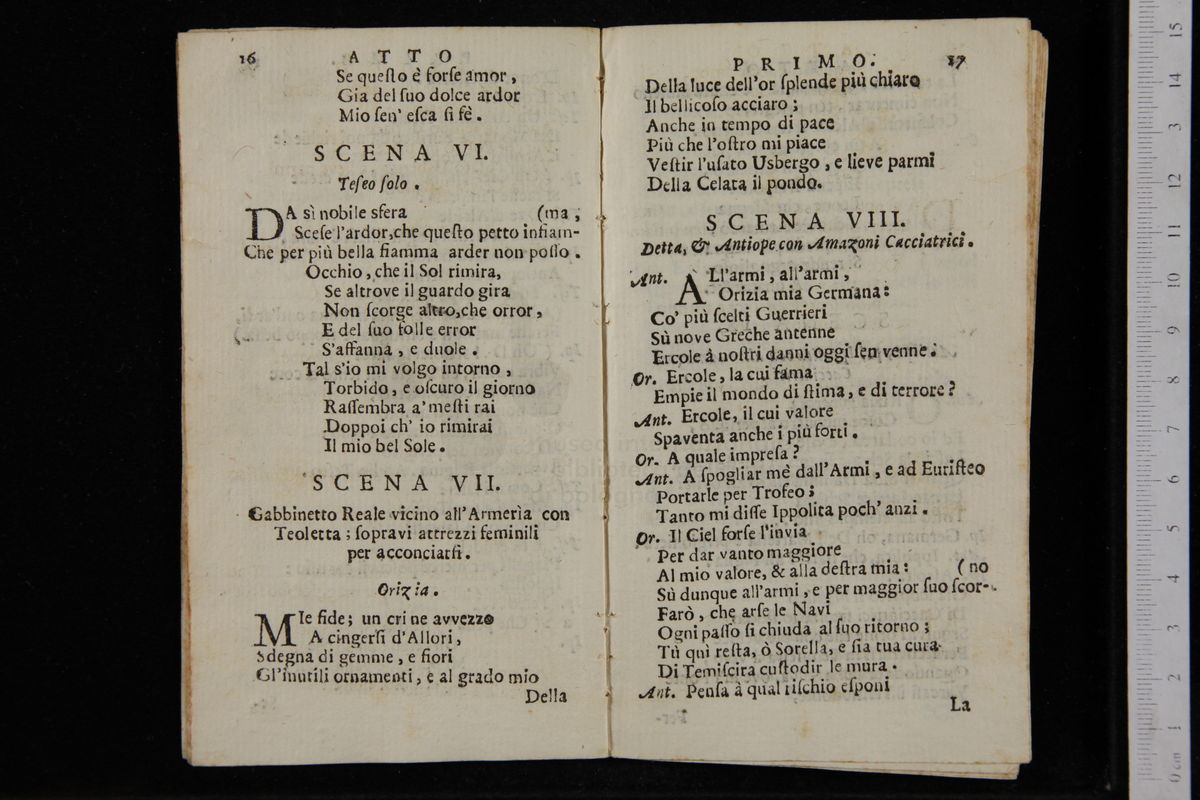 16 ATTO
Se queſto è forſe amor ,
Gia del ſuo dolce ardor
Mio ſen' eſca ſi fè .
SCENA VI.
Teſeo ſolo .
DA sì nobile sfera (ma ,
Sceſe l'ardor,che queſto petto infiam-
Che per più bella fiamma arder non poſſo .
Occhio , che il Sol rimira,
Se altrove il guardo gira
Non ſcorge altro,che orror ,
E del ſuo folle error
S'affanna , e duole .
Tal s'io mi volgo intorno ,
Torbido, e oſcuro il giorno
Raſſembra a' meſti rai
Doppoi ch' io rimirai
Il mio bel Sole .
SCENA VII.
Gabbinetto Reale vicino all'Armeria con
Teoletta ; ſopravi attrezzi feminili
per acconciarſi .
Orizia .
MIe fide; un crine avvezzo
A cingerſi d'Allori ,
Sdegna di gemme , e fiori
Gl'inutili ornamenti , e al grado mio
Della
PRIMO. 17
Della luce dell'or ſplende più chiaro
Il bellicoſo acciaro ;
Anche in tempo di pace
Più che l'oſtro mi piace
Veſtir l'uſato Usbergo , e lieve parmi
Della Celata il pondo.
SCENA VIII.
Detta, & Antiope con Amazoni Cacciatrici .
Ant. ALl'armi , all'armi ,
Orizia mia Germana :
Co' più ſcelti Guerrieri
Sù nove Greche antenne
Ercole à noſtri danni oggi ſen venne .
Or. Ercole , la cui fama
Empie il mondo di ſtima , e di terrore ?
Ant. Ercole, il cui valore
Spaventa anche i più forti .
Or. A quale impreſa ?
Ant. A ſpogliar mè dall'Armi , e ad Euriſteo
Portarle per Trofeo ;
Tanto mi diſſe Ippolita poch' anzi .
Or. Il Ciel forſe l'invia
Per dar vanto maggiore
Al mio valore, & alla deſtra mia : (no
Sù dunque all'armi , e per maggior ſuo ſcor-
Farò , che arſe le Navi
Ogni paſſo ſi chiuda al ſuo ritorno ;
Tù quì reſta, ò Sorella, e ſia tua cura
Di Temiſcira cuſtodir le mura .
Ant. Penſa à qual riſchio eſponi
La